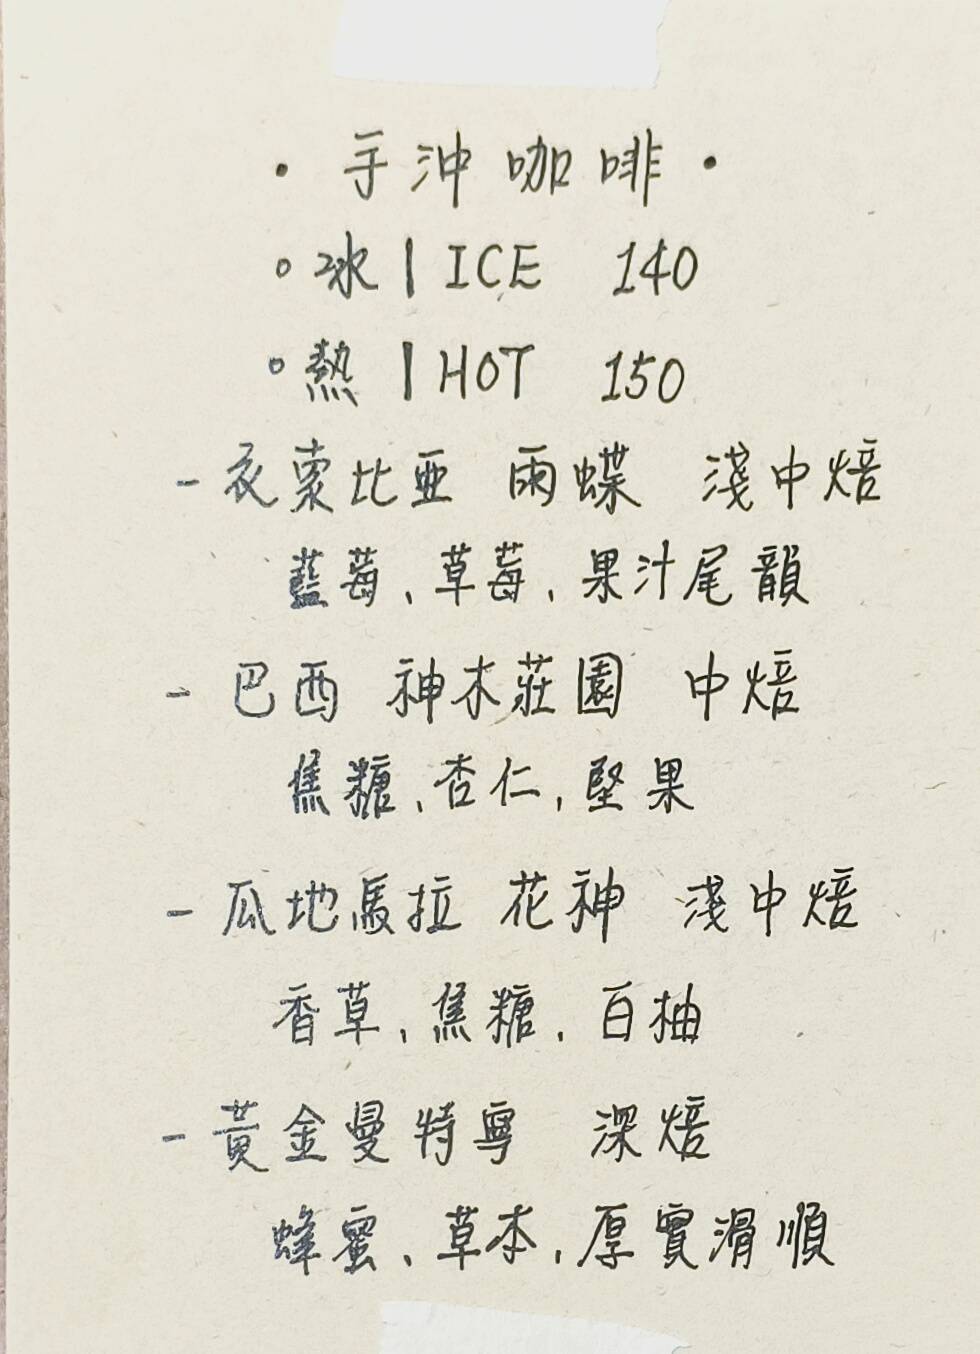 · 手沖咖啡 ·
。冰 | ICE 140
。熱 | HOT 150
- 衣索比亞 雨蝶 淺中焙
藍莓、草莓、果汁尾韻
- 巴西 神木莊園 中焙
焦糖、杏仁、堅果
- 瓜地馬拉 花神 淺中焙
香草、焦糖、白柚
- 黃金曼特寧 深焙
蜂蜜、草本、厚實滑順